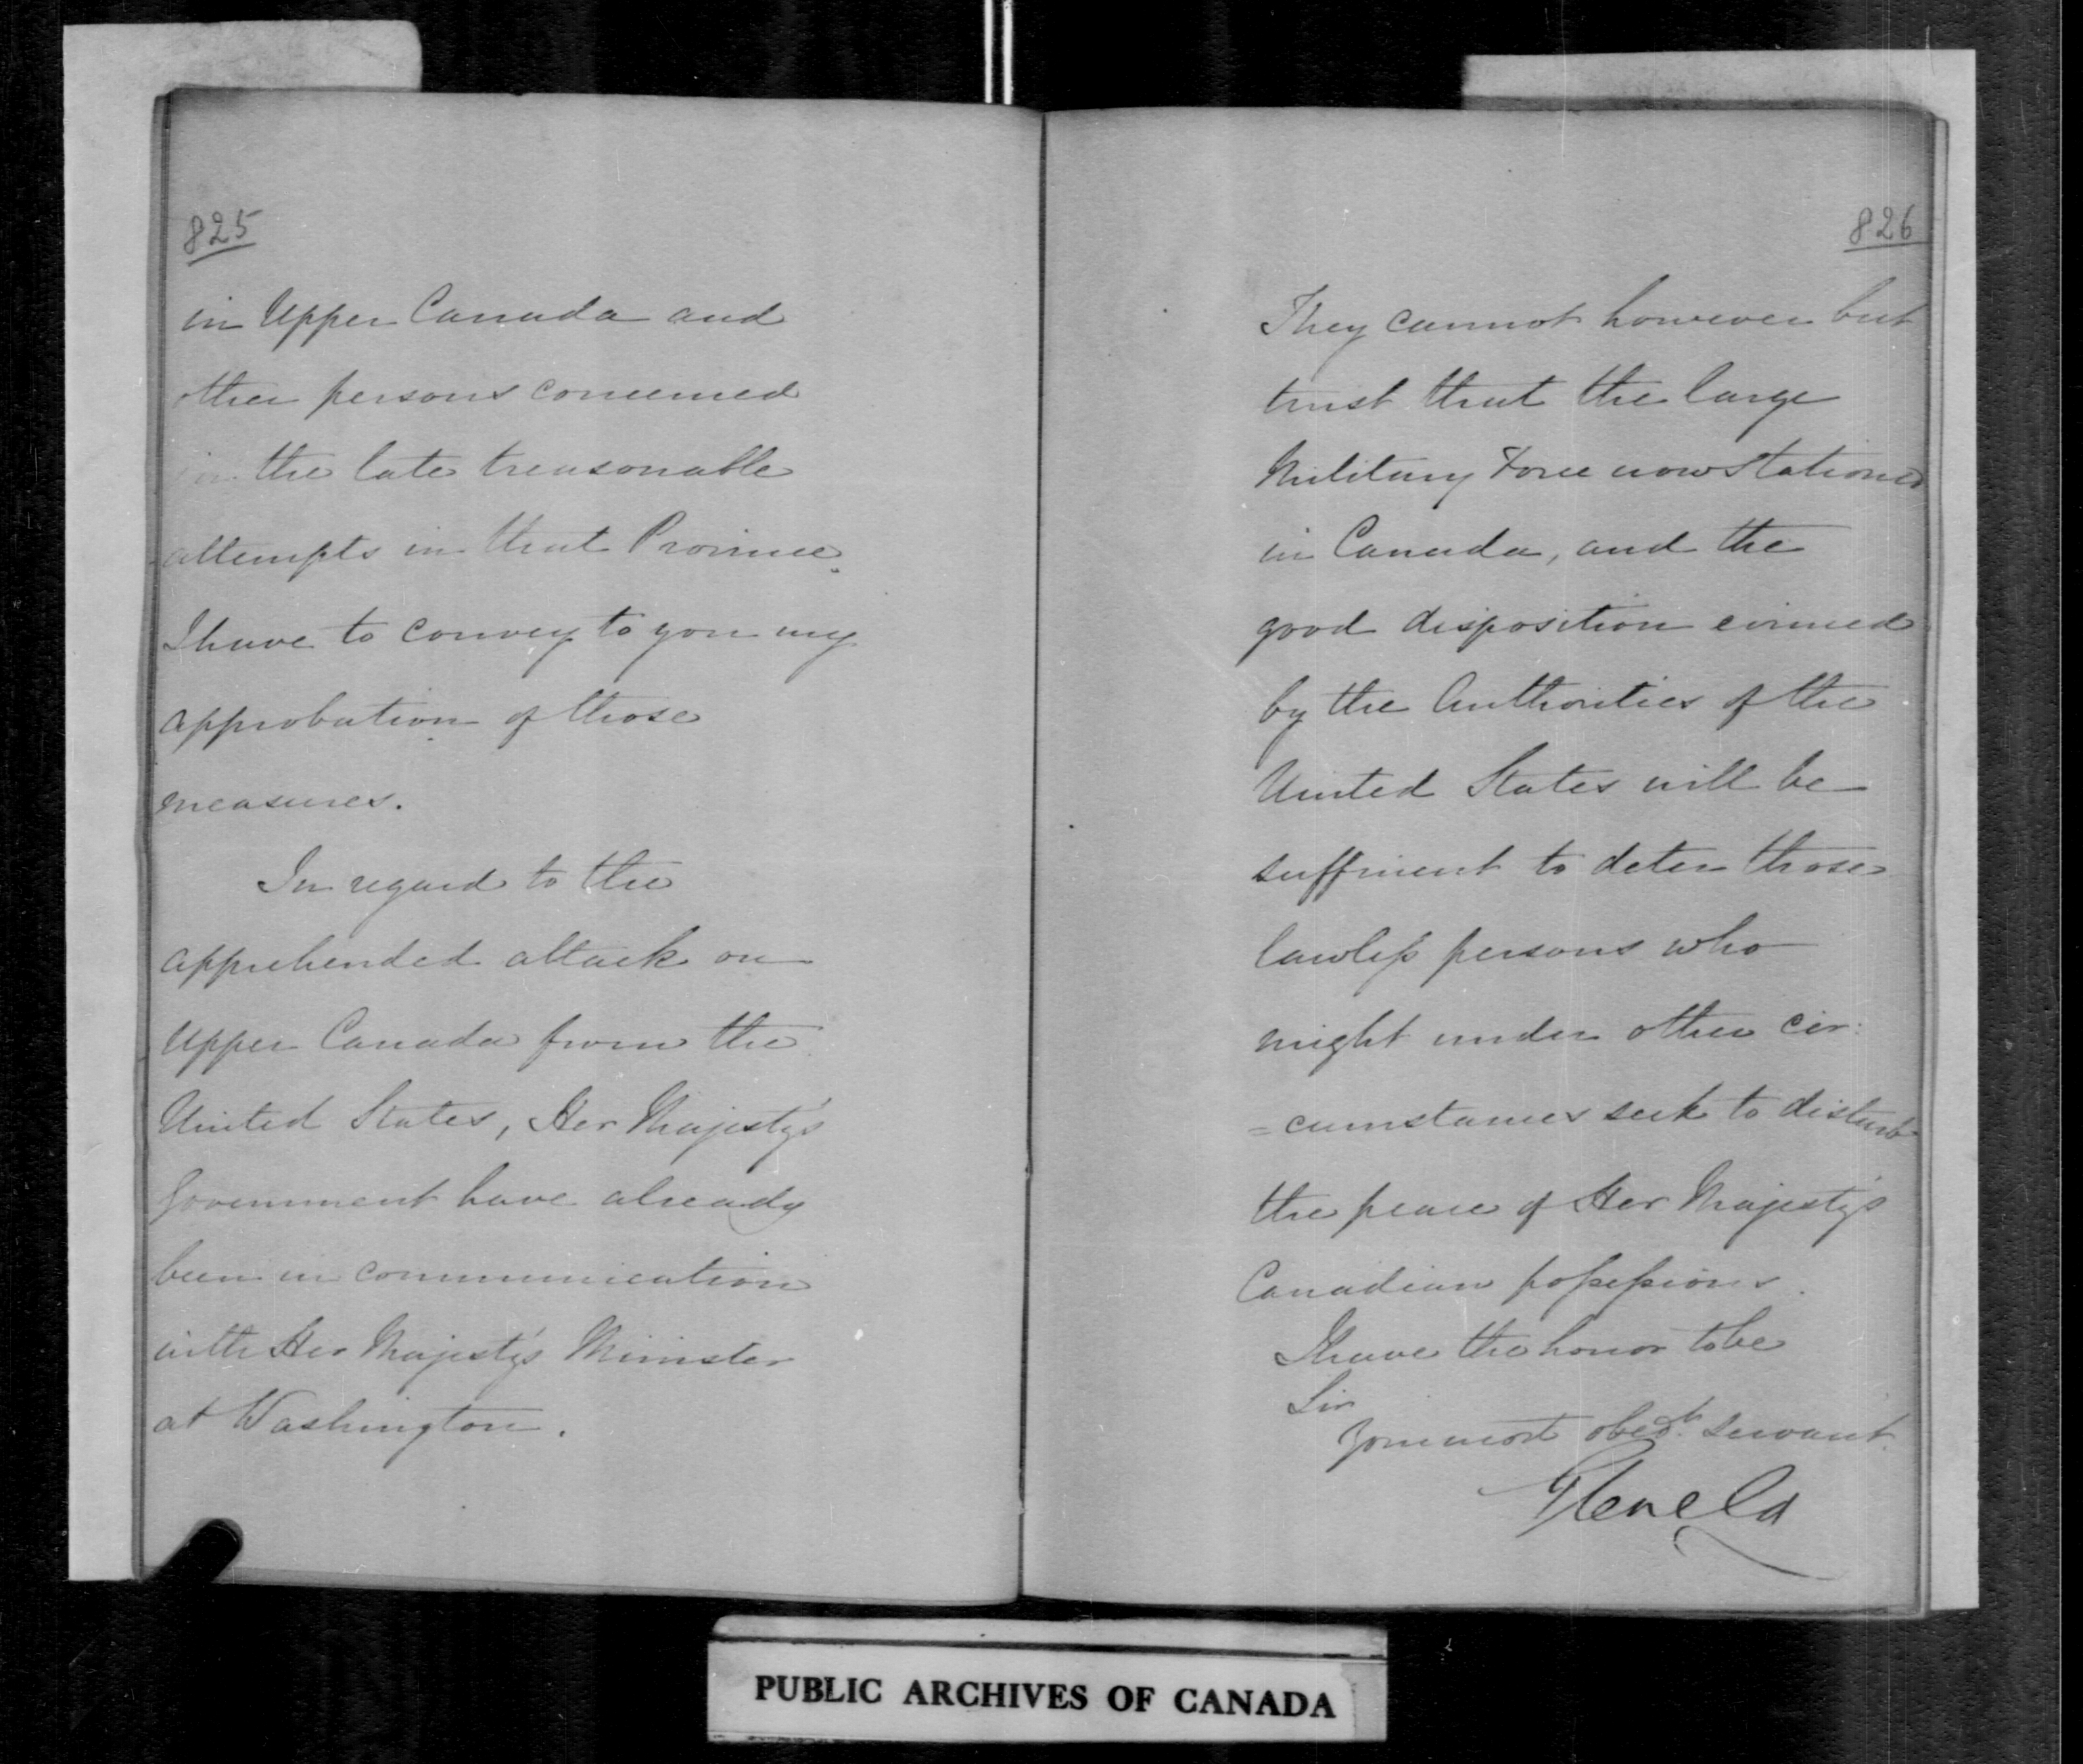 825
in Upper Canada and
other persons concerned
in the late treasonable
attempts in that Province.
I have to convey to you my
approbation of those
measures.
In regard to the
apprehended attack on
Upper Canada from the
United States, Her Majesty's
Government have already
been in communication
with Her Majesty's Minister
at Washington.
826
They cannot however but
trust that the large
Military Force now stationed
in Canada, and the
good disposition evinced
by the Authorities of the
United States will be
sufficient to deter those
lawless persons who
might under other cir:
=cumstances seek to disturb
the peace of Her Majesty's
Canadian possessions.
I have the honor to be
Sir
Your most obedt. servant.
Glenelg
PUBLIC ARCHIVES OF CANADA